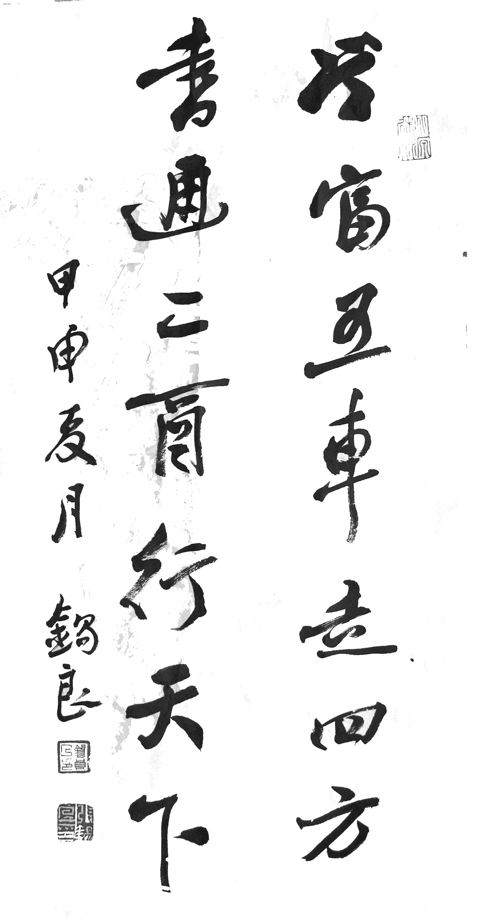 学富五車走四方
書通二酉行天下
甲申夏月 錫良